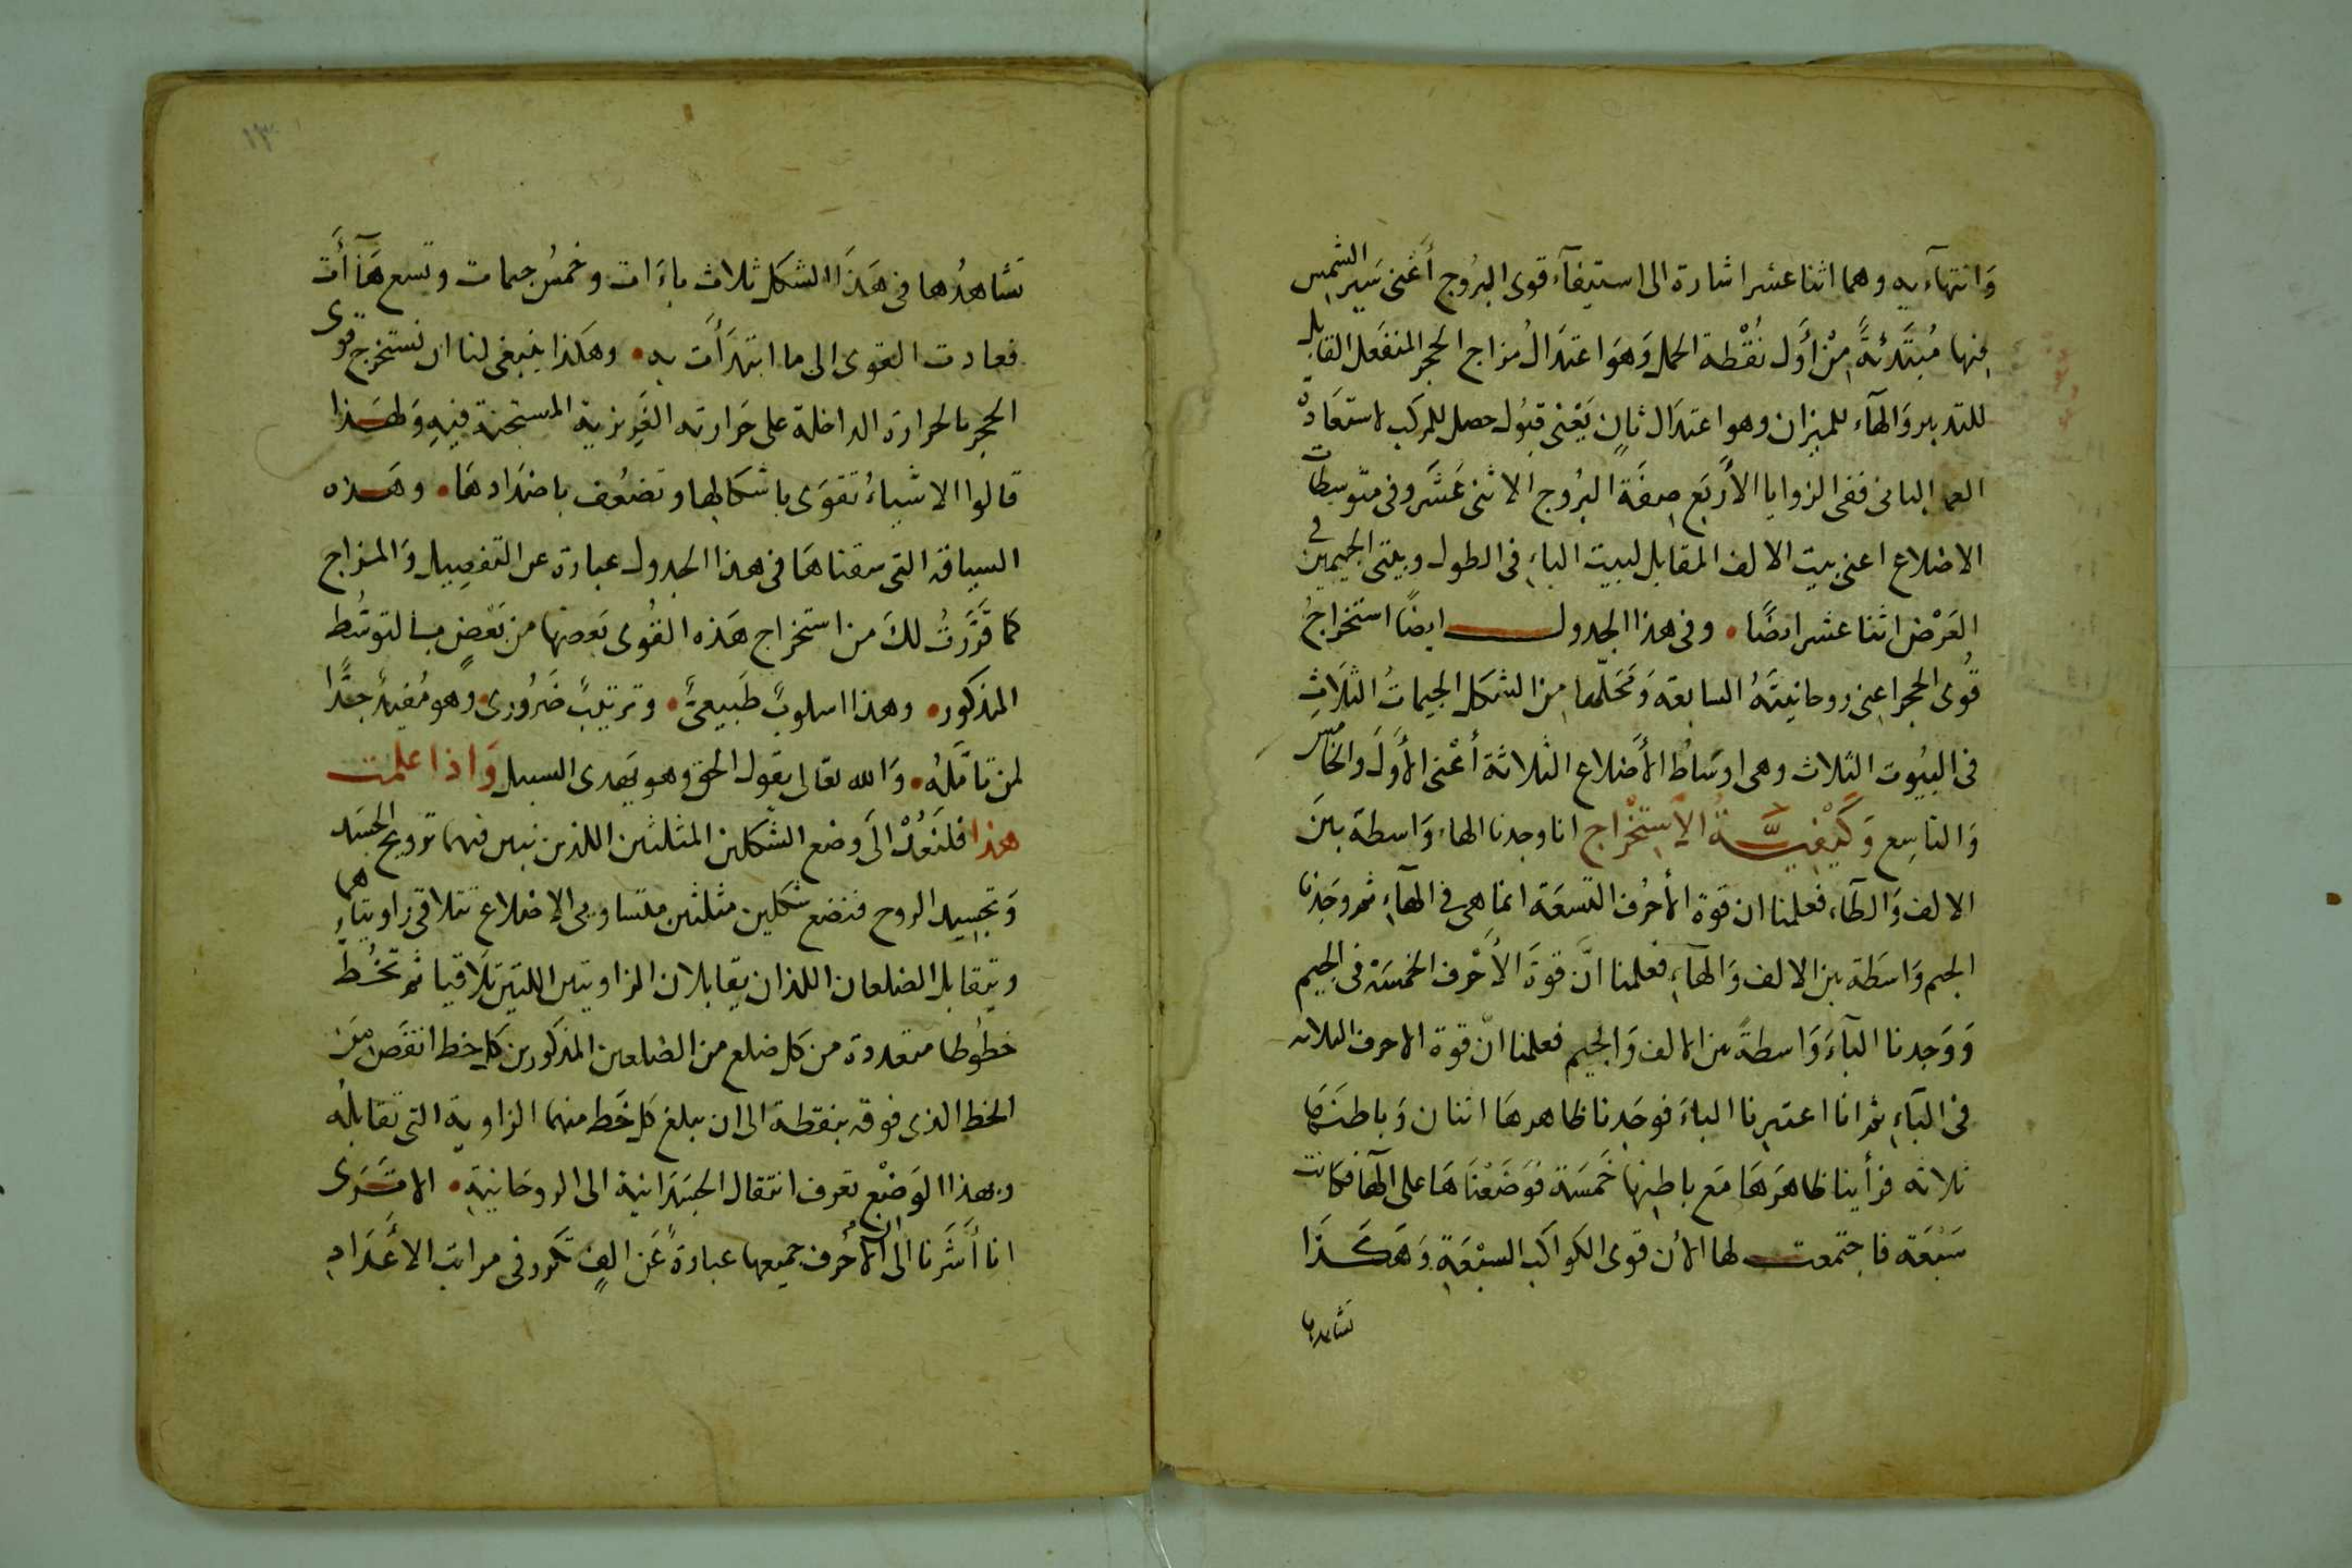 وَانتهآءيه وهما اثنا عشر اشارة الى استيفآء قوى البرُوج أَعْنى سَير الشمس
منها مُبتَدِئةً مِنْ أوَّل نُقْطة الحمل وَهوَ اعتدَالُ مزاج الحجر المنفَعل القابل
للتدبير وَالهآء للميزان وهو اعتدَال ثانٍ يَعْنى قبُول حصل للمركب لاستعَادة
الباى ففى الزوايا الأربَع صِفَة البرُوج الاثنى عَشَر وفى متوسطات
الاضلاع اعنى بيت الالف المقابل لبيت الباءِ فى الطول وبيتى الجيمين فى
العَرْض اثنا عشر ايضًا • وفى هذا الجدول ايضًا استخراجُ
قُوى الحجر اعنى روحانيتَهُ السابعة وَمَحَلّها مِن الشكل الجيماتُ الثلَاثِ
فى البيُوت الثلاث وهى اوسَاطُ الأضلاع الثلاثة أعْنى الأوَلَ والخامس
وَالتاسِع وَكَيْفيَّةُ الاسْتِخْراج انا وجدنا الهاء وَاسطة بينَ
الالف وَالطآء فعلمنا ان قوة الأحرُف التسعَة انما هى فى الهآءِ ثم وَجَدنا
الجيم وَاسَطة بين الالف وَالهآءِ فعلمنا انَّ قوةَ الأَحْرف الخمسَة فى الجيم
وَوَجدنا البآءَ وَاسطةً بين الالف وَالجيم فعلمنا انّ قوة الاحرف الثلاثة
فى البَاءِ ثم انا اعتبرنا الباءَ فوجَدنا ظاهرهَا اثنان وَباطنهَا
ثلاثه فرأينا ظاهرَهَا مَع باطِنها خَمسَة فوَضَعْنَاهَا على الهَا فكانت
سَبْعَة فاجتمعت لها الأن قوى الكواكب السبْعَةِ وَهَكَذَا
تشاهدها
١٣
تشَاهدُها فى هَذَا الشكل ثلاث باءَات وخمسُ جيمات وتسع هَاآتَ
فعادت القوى الى ما ابتدَأَت به • وهكذا ينبغى لنا ان نستخرج قوى
الحجر بالحرارة الداخلة على حَرارته الغَرِيزية المستجنة فيهِ وَلهَذا
قالوا الاشياءُ تقوَى باشكالها وتضعُف باضدَادهَا • وهَذه
السياقة التى سقناهَا فى هذا الجدول عبارة عن التفصِيل وَالمزاج
كما قَرَّرتُ لكَ من استخراج هَذه القُوى بَعضها من بَعْضٍ بالتوسُّط
المذكور • وهذا اسلوبٌ طَبيعىٌ • وترتيبٌ ضَرُورى • وهو مُفيدٌ جدًّا
لمن تأمَّلهُ • وَالله تعالى يقول الحق وهو يَهدى السبيل وَاذا علمت
هذا فلنَعُدْ الىَ وضع الشكلين المثلثين اللذين نبين فيهما ترويح الجسَد
وَتجسِيد الروح فنضع شكلين مثلثين متساويى الإضلاع تتلاقى زاويتاهما
ويتقابل الضلعان اللذان يقابلان الزاويتين اللتين تلَاقيا ثم تخُطّ
خطوُطا متعددة من كل ضلع من الضلعين المذكورين كل خط انقَصَ مِن
الخط الذى فوقه بنقطة الى ان يبلغ كل خَط منها الزاوية التى تقابلُه
وبهذا الوَضْع تعرف انتقال الجسَدَانية الى الروحَانيةِ • الا تَرَى
انا أَشَرنا الى ان الأحُرف جميعها عبارةً عَن الفٍ تكرر فى مراتب الاعَدَادِ